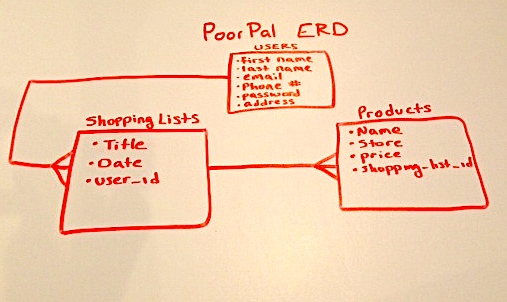 PoorPal ERD
USERS
• first name
• last name
• email
• Phone #
• password
• address
Shopping Lists
• Title
• Date
• user_id
Products
• Name
• Store
• price
• shopping-list_id